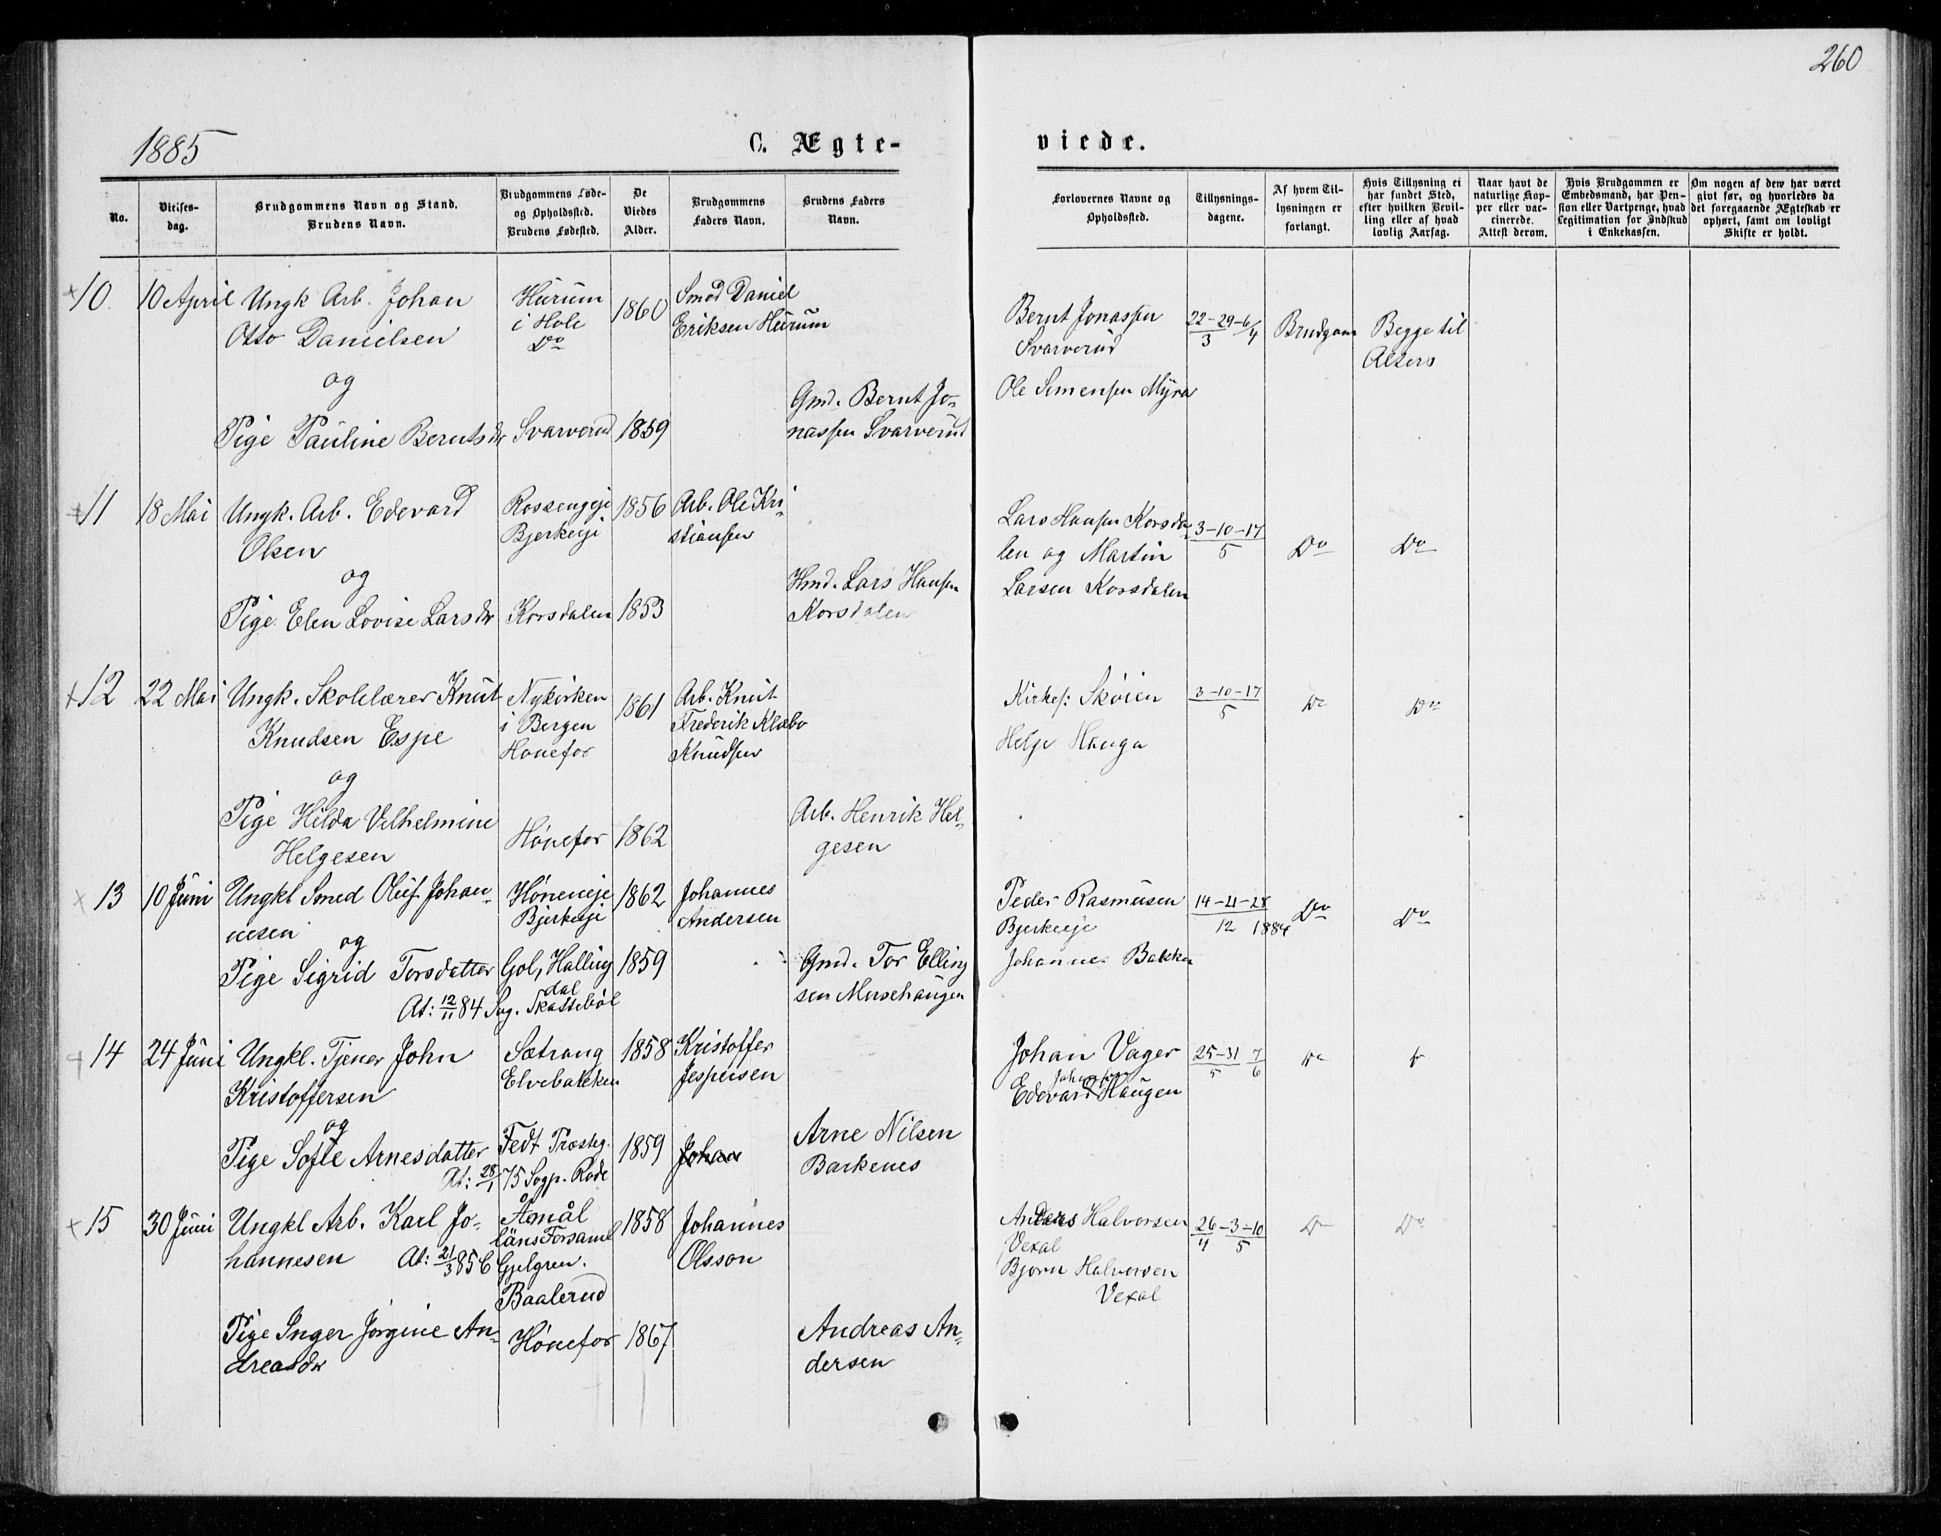 260
1885
C. Ægte-
viede.
No.
Vielses-
dag.
Brudgommens Navn og Stand.
Brudens Navn.
Brudgommens Føde-
og Opholdssted.
Brudens Fødested.
De
Viedes
Alder.
Brudgommens
Faders Navn.
Brudens Faders
Navn.
Forlovernes Navne og
Opholdssted.
Tillysnings-
dagene.
Af hvem Til-
lysningen er
forlangt.
Hvis Tillysning ei
har fundet Sted,
efter hvilken Bevil-
ling eller af hvad
lovlig Aarsag.
Naar havt de
naturlige Kop-
per eller vac-
cinerede.
Attest derom.
Hvis Brudgommen er
Embedsmand, har Pen-
sion eller Vartpenge, hvad
Legitimation for Indskud
i Enkekassen.
Om nogen af dem har været
gift før, og hvorledes da
det foregaaende Ægteskab er
ophørt, samt om lovligt
Skifte er holdt.
10 10 April Ungk Arb. Johan
Otto Danielsen
og
Pige Pauline Berntsdr
Hurum
i Hole
Do
Svarverud
1860
1859
Smed Daniel
Eriksen Hurum
Gmd. Bernt Jo-
nassen Svarverud
Bernt Jonassen
Svarverud
Ole Simensen Myra
22-29-6/4
3
Brudgom
Begge til
Alters
11 18 Mai Ungk. Arb. Edevard
Olsen
og
Pige Elen Lovise Larsdr
Rossengeje
Bjerkeeje
Korsdalen
1856
1853
Arb. Ole Kri-
stiansen
Hmd. Lars Hansen
Korsdalen
Lars Hansen Korsda-
len og Martin
Larsen Korsdalen
3-10-17
5
Do
Do
12 22 Mai Ungk. Skolelærer Knut
Knudsen Espe
og
Pige Hilda Vilhelmine
Helgesen
Nykirken
i Bergen
Hønefos
Hønefos
1861
1862
Arb. Knut
Frederik Klæbo
Knudsen
Arb. Henrik Hel-
gesen
Kirkes: Skøien
Helge Hauga
3-10-17
5
Do
Do
13 10 Juni Ungkl Smed Oluf Johan-
nesen
og
Pige Sigrid Torsdatter
At: 12/11 84
Høneneje
Bjerkeeje
Gol, Halling
dal
Sog. Skassebøl
1862
1859
Johannes
Andersen
Gmd. Tor Elling
sen Musehaugen
Peder Rasmusen
Bjerkeeje
Johannes Bakken
14-21-28
12 1884
Do
Do
14 24 Juni Ungkl. Tjener John
Kristoffersen
og
Pige Sofie Arnesdatter
At: 28/1 75
Sætrang
Elvebakken
Fedt Præsteg.
Sogp. Rode
1858
1859
Kristoffer
Jespersen
Johan
Arne Nilsen
Barkenes
Johan Vager
Johansen
Edevard Haugen
25-31 7
5 6
Do
15 30 Juni Ungkl Arb. Karl Jo-
hannesen
At: 21/3 856
Pige Inger Jørgine An-
dreasdr
Åmål
läns Forsaml
Gjelgren.
Baalerud
Hønefos
1858
1867
Johannes
Olsson
Andreas An-
dersen
Anders Halvorsen
Vexal
Bjørn Halvorsen
Vexal
26-3-10
4 5
Do
Do